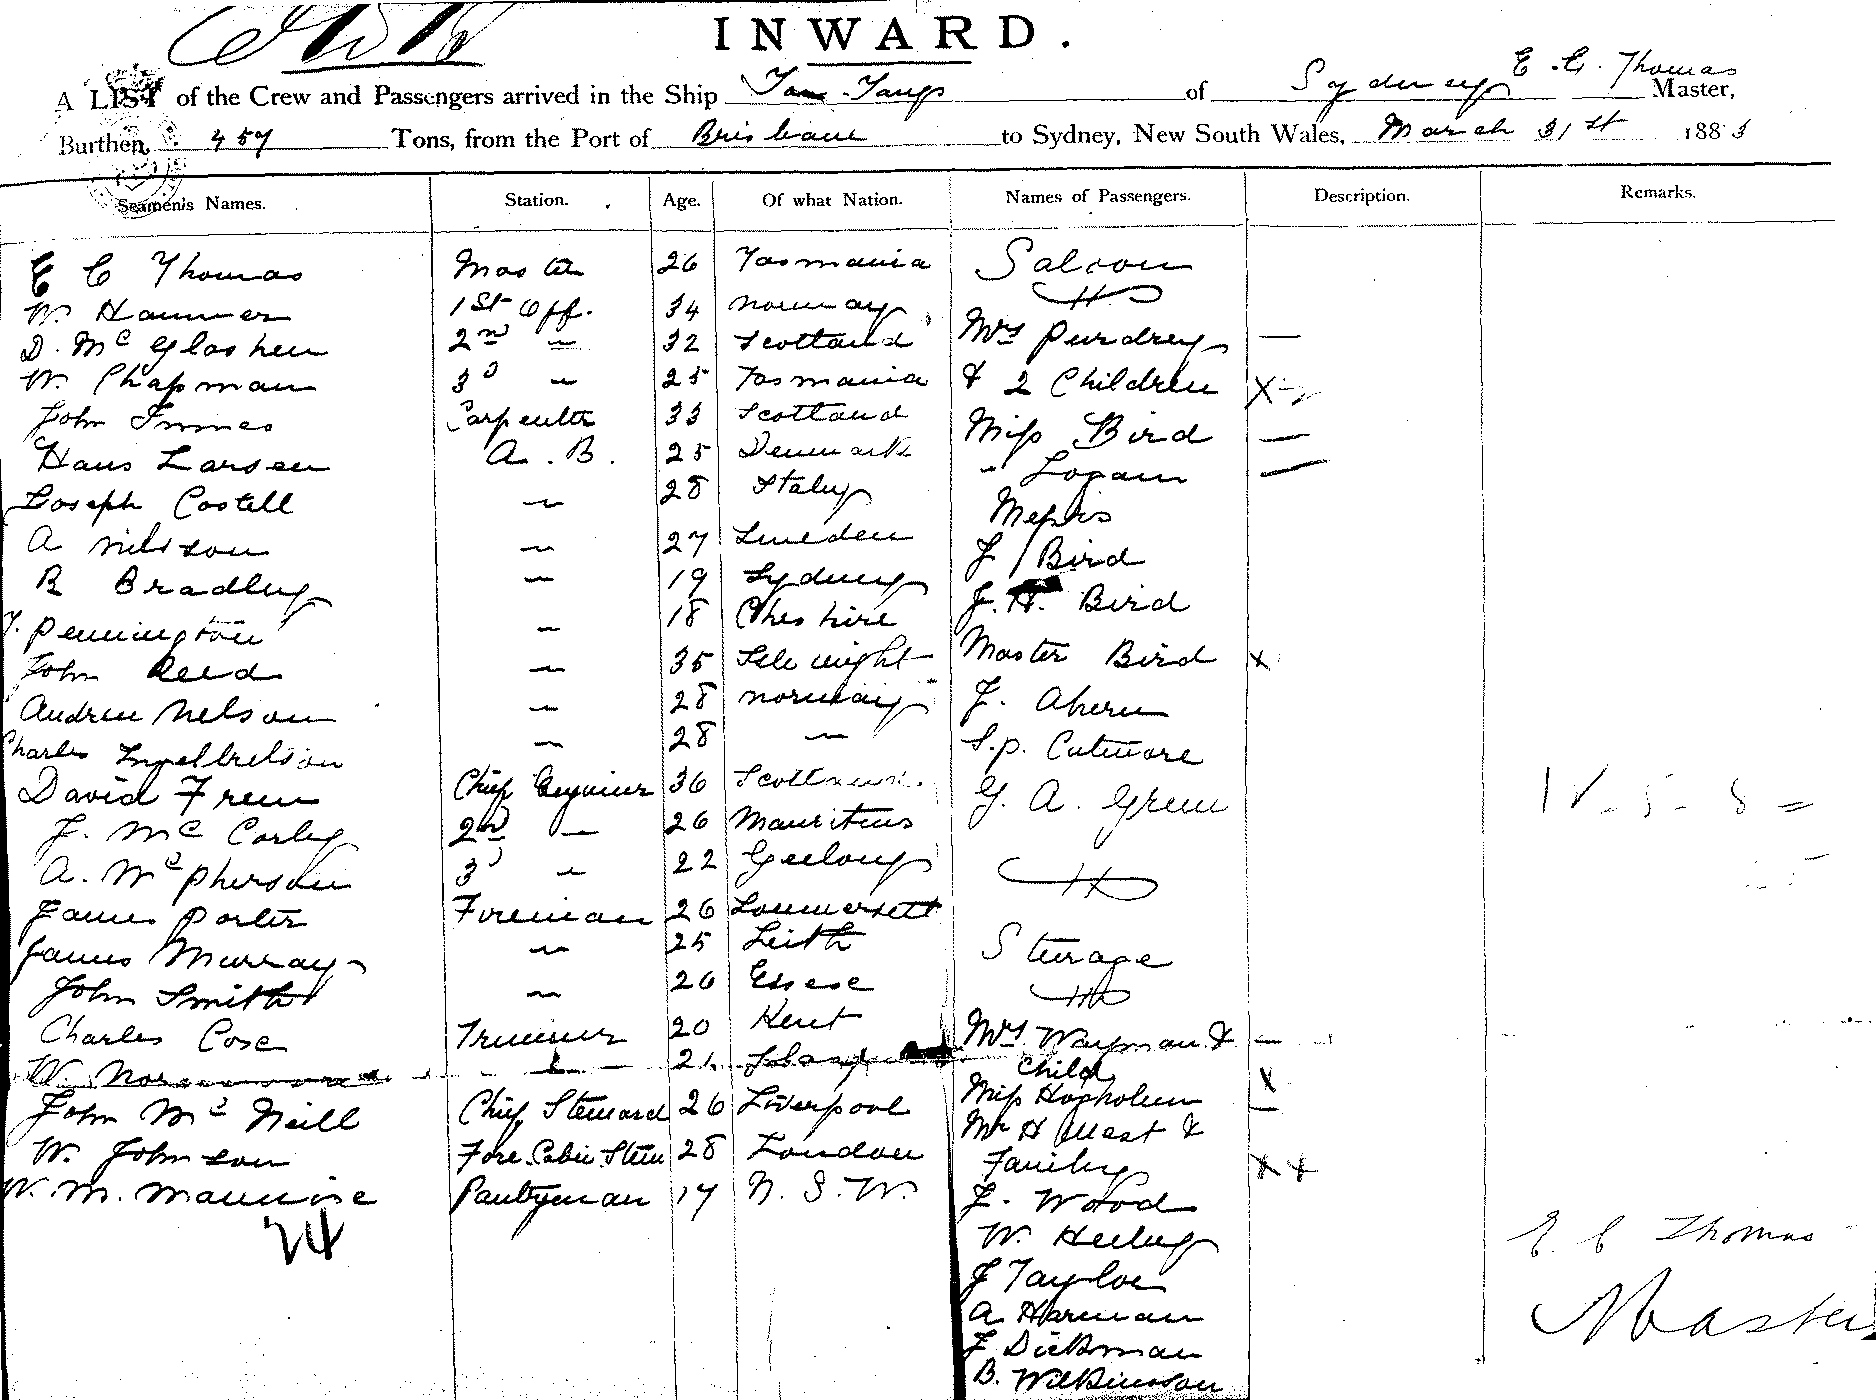 INWARD.
E. C. Thomas
A LIST of the Crew and Passengers arrived in the Ship of Sydney Master,
Burthen, 457 Tons, from the Port of Brisbane to Sydney, New South Wales, March 31st 1883
Seamen's Names. Station. Age. Of what Nation. Names of Passengers. Description. Remarks.
E C Thomas Master 26 Tasmania Saloon
W. Hammer 1st Off. 34 Norway
D. Mc Glashen 2nd " 32 Scotland Mrs Purdrey —
W. Chapman 3d " 25 Tasmania & 2 Children X
John Innes Carpenter 33 Scotland Miss Bird —
Hans Larsen A.B. 25 Denmark " Logan —
Joseph Costell " 28 Italy Messrs
A Nilsson " 27 Sweden J Bird
R Bradley " 19 Sydney J. H. Bird
T. Pennington " 18 Cheshire
John Reed " 35 Isle Wight Master Bird X
Andrew Nelson " 28 Norway J. Ahern
Charles " 28 " S.P. Cutmore
David Frew Chief Engineer 36 Scotland G. A. Green
J. Mc Corley 2nd " 26 Mauritius
A. McPherson 3d " 22 Geelong
James Porter Fireman 26 Sommersett
James Murray " 25 Leith Steerage
John Smith " 26 Essex
Charles Cose Trimmer 20 Kent Mrs Wayman & —
W. " 21 Child X
John Mc Neill Chief Steward 26 Liverpool Miss —
W. Johnson Fore Cabin Stew 28 London Mr H West &
Family X X
W. M. Pantryman 17 N. S. W. J. Wood
24
W. E C Thomas
J Taylor
A Harman Master
J Dickman
B. Wilkinson